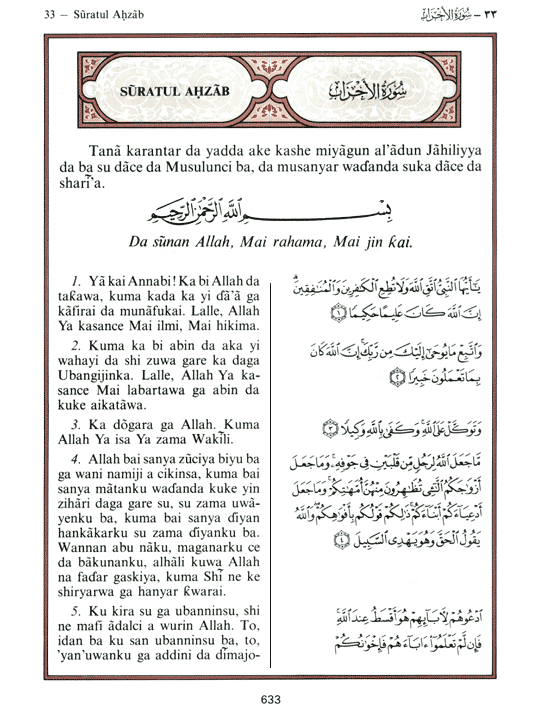 33 — Sūratul Aḥzāb
٣٣ — سُورَةُ الأَحْزَاب
SŪRATUL AḤZĀB
سُورَةُ الأَحْزَاب
Tanã karantar da yadda ake kashe miyãgun al'ãdun Jãhiliyya
da ba su dãce da Musulunci ba, da musanyar waɗanda suka dãce da
sharĩ'a.
بِسْمِ اللَّهِ الرَّحْمَٰنِ الرَّحِيمِ
Da sũnan Allah, Mai rahama, Mai jin ƙai.
1. Yã kai Annabi! Ka bi Allah da
taƙawa, kuma kada ka yi ɗã'ã ga
kãfirai da munãfukai. Lalle, Allah
Ya kasance Mai ilmi, Mai hikima.
2. Kuma ka bi abin da aka yi
wahayi da shi zuwa gare ka daga
Ubangijinka. Lalle, Allah Ya ka-
sance Mai labartawa ga abin da
kuke aikatãwa.
3. Ka dõgara ga Allah. Kuma
Allah Ya isa Ya zama Wakĩli.
4. Allah bai sanya zũciya biyu ba
ga wani namiji a cikinsa, kuma bai
sanya mãtanku waɗanda kuke yin
zihãri daga gare su, su zama uwã-
yenku ba, kuma bai sanya ɗiyan
hankãkarku su zama ɗiyanku ba.
Wannan abu nãku, maganarku ce
da bãkunanku, alhãli kuwa Allah
na faɗar gaskiya, kuma Shĩ ne ke
shiryarwa ga hanyar ƙwarai.
5. Ku kira su ga ubanninsu, shi
ne mafi ãdalci a wurin Allah. To,
idan ba ku san ubanninsu ba, to,
'yan'uwanku ga addini da dĩmajo-
يَـٰٓأَيُّهَا ٱلنَّبِىُّ ٱتَّقِ ٱللَّهَ وَلَا تُطِعِ ٱلْكَـٰفِرِينَ وَٱلْمُنَـٰفِقِينَ ۗ
إِنَّ ٱللَّهَ كَانَ عَلِيمًا حَكِيمًا ﴿١﴾
وَٱتَّبِعْ مَا يُوحَىٰٓ إِلَيْكَ مِن رَّبِّكَ ۚ إِنَّ ٱللَّهَ كَانَ
بِمَا تَعْمَلُونَ خَبِيرًا ﴿٢﴾
وَتَوَكَّلْ عَلَى ٱللَّهِ ۚ وَكَفَىٰ بِٱللَّهِ وَكِيلًا ﴿٣﴾
مَّا جَعَلَ ٱللَّهُ لِرَجُلٍ مِّن قَلْبَيْنِ فِى جَوْفِهِۦ ۚ وَمَا جَعَلَ
أَزْوَٰجَكُمُ ٱلَّـٰٓـِٔى تُظَـٰهِرُونَ مِنْهُنَّ أُمَّهَـٰتِكُمْ ۚ وَمَا جَعَلَ
أَدْعِيَآءَكُمْ أَبْنَآءَكُمْ ۚ ذَٰلِكُمْ قَوْلُكُم بِأَفْوَٰهِكُمْ ۖ وَٱللَّهُ
يَقُولُ ٱلْحَقَّ وَهُوَ يَهْدِى ٱلسَّبِيلَ ﴿٤﴾
ٱدْعُوهُمْ لِـَٔابَآئِهِمْ هُوَ أَقْسَطُ عِندَ ٱللَّهِ ۚ
فَإِن لَّمْ تَعْلَمُوٓا۟ ءَابَآءَهُمْ فَإِخْوَٰنُكُمْ
633